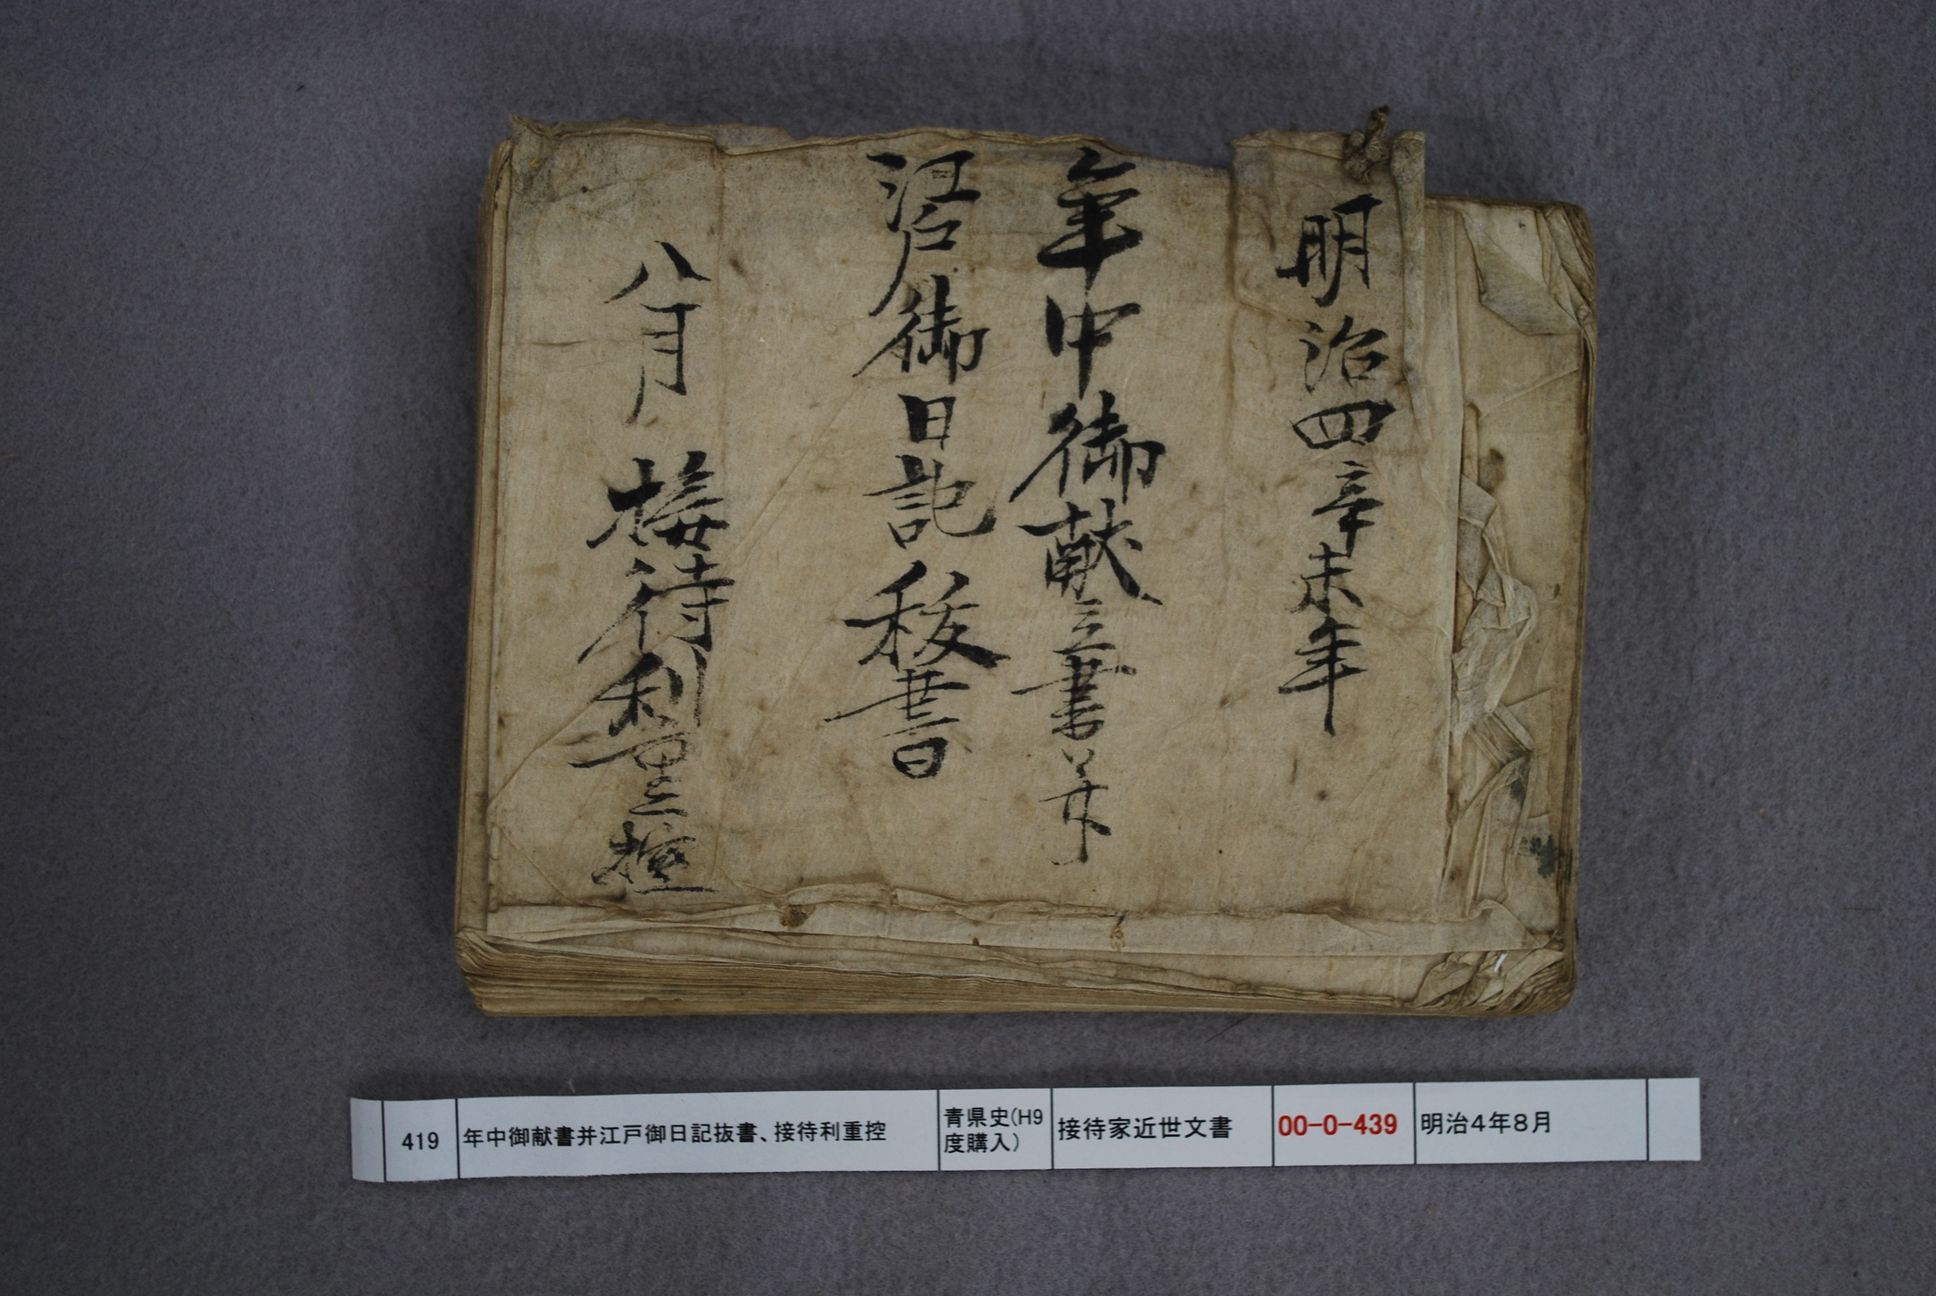 明治四辛未年
年中御献立書并
江戸御日記抜書
八月 接待利重控
419
年中御献書并江戸御日記抜書、接待利重控
青県史(H9
度購入)
接待家近世文書
00-0-439
明治4年8月